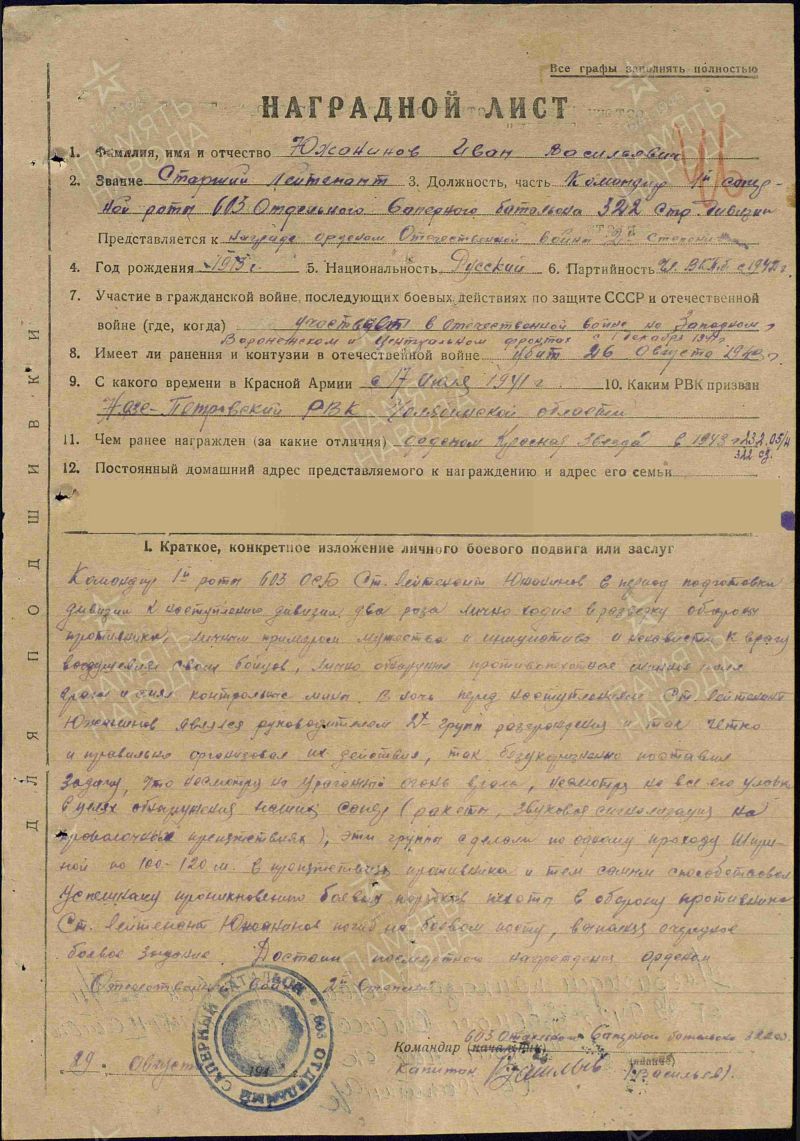 Все графы заполнять полностью
НАГРАДНОЙ ЛИСТ
1. Фамилия, имя и отчество Южанинов Иван Васильевич
2. Звание Старший лейтенант 3. Должность, часть Командир 1й сапер-
ной роты 603 Отдельного Саперного батальона 322 Стр. Дивизии
Представляется к награде орденом Отечественной Войны 2й степени
4. Год рождения 1915 г. 5. Национальность Русский 6. Партийность Чл. ВКП.б. с 1942 г.
7. Участие в гражданской войне, последующих боевых действиях по защите СССР и отечественной
войне (где, когда) участвовал в Отечественной войне на Западном,
Воронежском и Центральном фронтах с 1 декабря 1941 г.
8. Имеет ли ранения и контузии в отечественной войне Убит 26 Августа 1943 г.
9. С какого времени в Красной Армии с 17 июля 1941 г. 10. Каким РВК призван
Нязе-Петровский РВК Челябинской области
11. Чем ранее награжден (за какие отличия) орденом Красная Звезда в 1943 г.
322 сд.
12. Постоянный домашний адрес представляемого к награждению и адрес его семьи
ДЛЯ ПОДШИВКИ
I. Краткое, конкретное изложение личного боевого подвига или заслуг
Командир 1й роты 603 ОСБ Ст. Лейтенант Южанинов в период подготовки
дивизии к наступлению дивизии, два раза лично ходил в разведку обороны
противника, личным примером мужества и инициативы и ненависти к врагу
воодушевляя своих бойцов, лично обнаружил противопехотное минное поле
врага и снял контрольные мины. В ночь перед наступлением Ст. Лейтенант
Южанинов являлся руководителем 2х групп разграждения и так четко
и правильно организовал их действия, так безукоризненно поставил
задачу, что несмотря на ураганный огонь врага, несмотря на все его уловки
в целях обнаружения наших сапер (ракеты, звуковая сигнализация на
проволочных препятствиях), эти группы сделали по одному проходу шири-
ной по 100-120 м. в препятствиях противника и тем самым способствовали
успешному проникновению боевых порядков пехоты в оборону противника
Ст. Лейтенант Южанинов погиб на боевом посту, выполняя очередное
боевое задание. Достоин посмертного награждения орденом
Отечественной Войны 2й Степени
603 ОТДЕЛЬНЫЙ САПЕРНЫЙ БАТАЛЬОН
Командир (начальник) 603 Отдельного Саперного батальона 322 сд.
Капитан Васильев (Васильев).
(звание)
29 Августа 194
ПАМЯТЬ НАРОДА